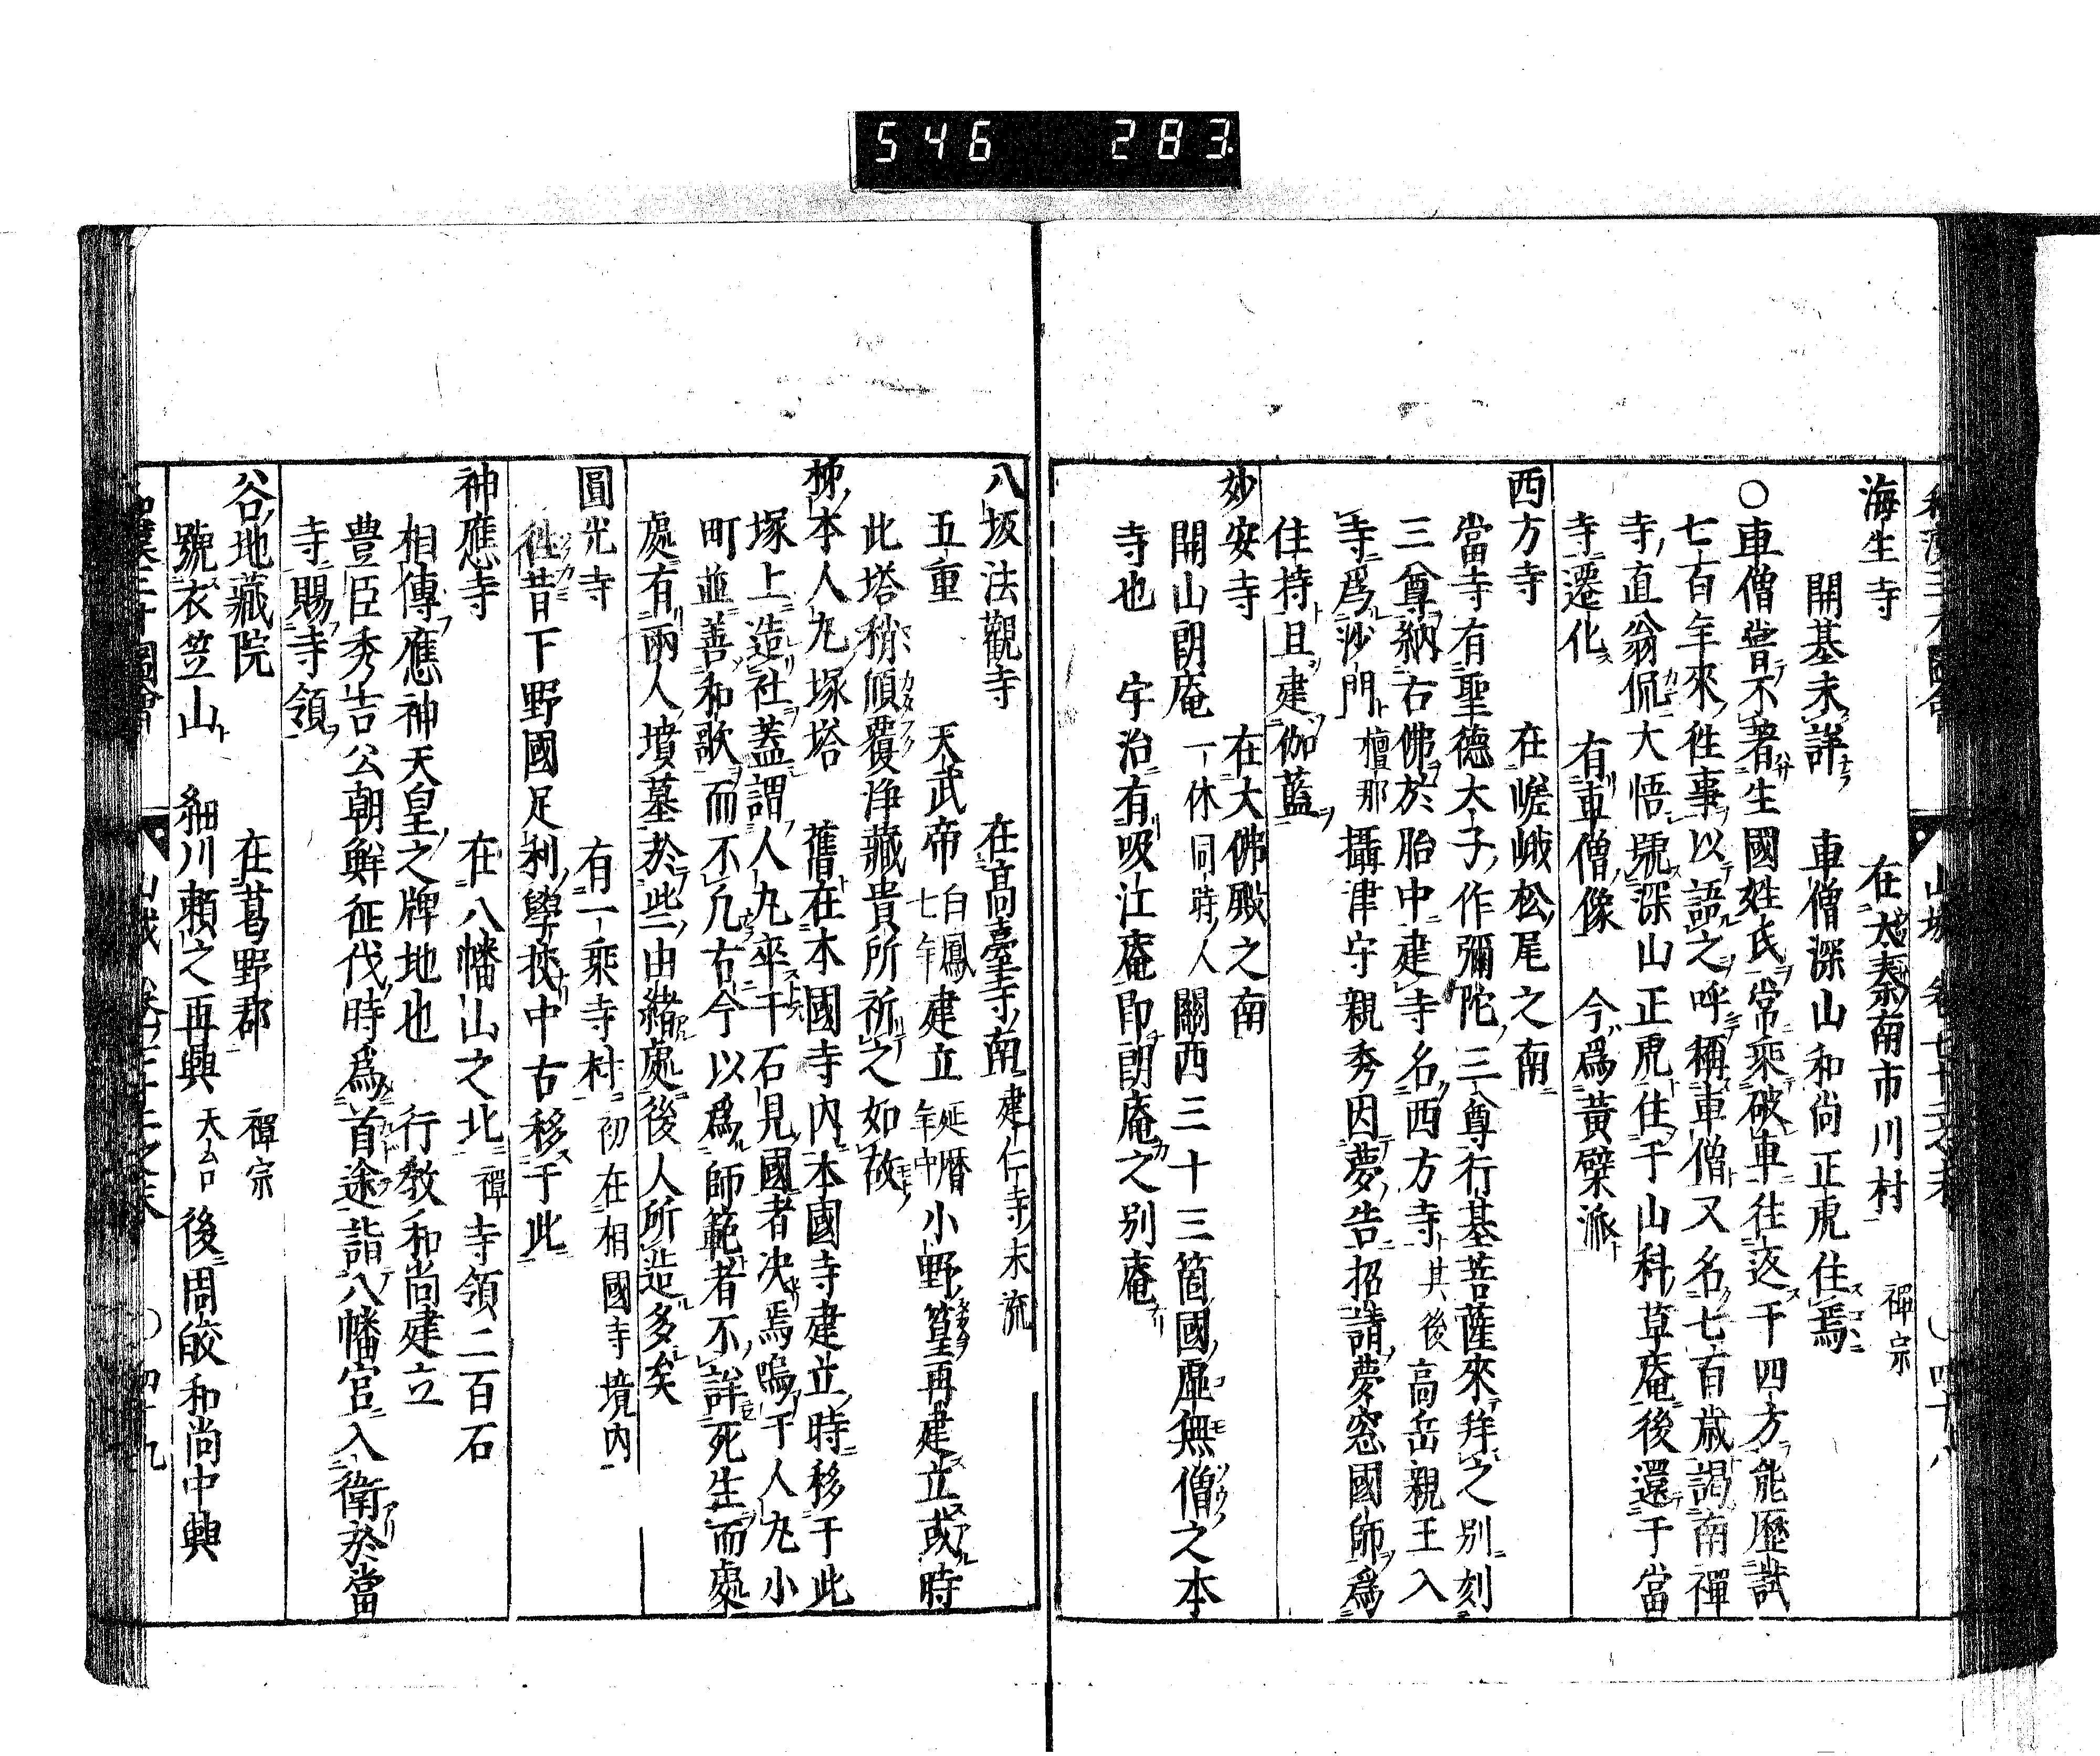 546 283
和漢三才圖會 山城 卷七十二之末 ○四十八
海生寺 在太秦南市川村 禪宗
開基未詳 車僧深山和尚正虎住焉
○車僧嘗不著生國姓氏常乘破車往返于四方能歷試
七百年來往事以語之呼稱車僧又名七百歲謁南禪
寺直翁侃大悟號深山正虎住于山科草庵後還于當
寺遷化 有車僧像 今爲黃檗派
西方寺 在嵯峨松尾之南
當寺有聖德太子作彌陀三尊行基菩薩來拜之別刻
三尊納右佛於胎中建寺名西方寺其後高岳親王入
寺爲沙門檀那攝津守親秀因夢告招請夢窓國師爲
住持且建伽藍
妙安寺 在大佛殿之南
開山朗庵 一休同時人 關西三十三箇國虛無僧之本
寺也 宇治有吸江庵即朗庵之別庵
八坂法觀寺 在高臺寺南 建仁寺末流
五重 天武帝 白鳳七年 建立 延曆年中 小野篁再建立或時
此塔稍傾覆淨藏貴所祈之如故
柹本人丸塚塔 舊在本國寺內本國寺建立時移于此
塚上造社蓋謂人丸卒于石見國者决焉嗚于人丸小
町並善和歌而不凡古今以爲師範者不詳死生而處
處有兩人墳墓於些由緒處後人所造多矣
圓光寺 有一乘寺村 初在相國寺境内
往昔下野國足利學挍中古移于此
神應寺 在八幡山之北 禪 寺領二百石
相傳應神天皇之牌地也 行敎和尚建立
豊臣秀吉公朝鮮征伐時爲首途詣八幡宮入衛於當
寺賜寺領
谷地藏院 在葛野郡 禪宗
號衣笠山 細川賴之再興 天台 後周皎和尚中興